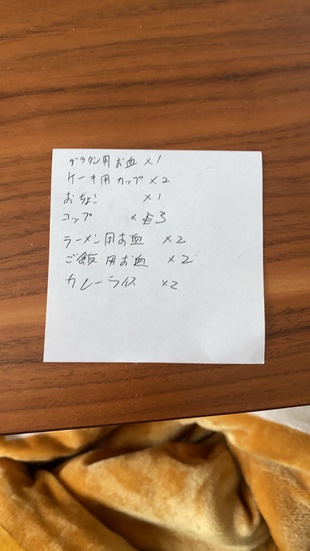 グラタン用お皿 ×1
ケーキ用カップ ×2
おちょこ ×1
コップ ×3
ラーメン用お皿 ×2
ご飯用お皿 ×2
カレーライス ×2